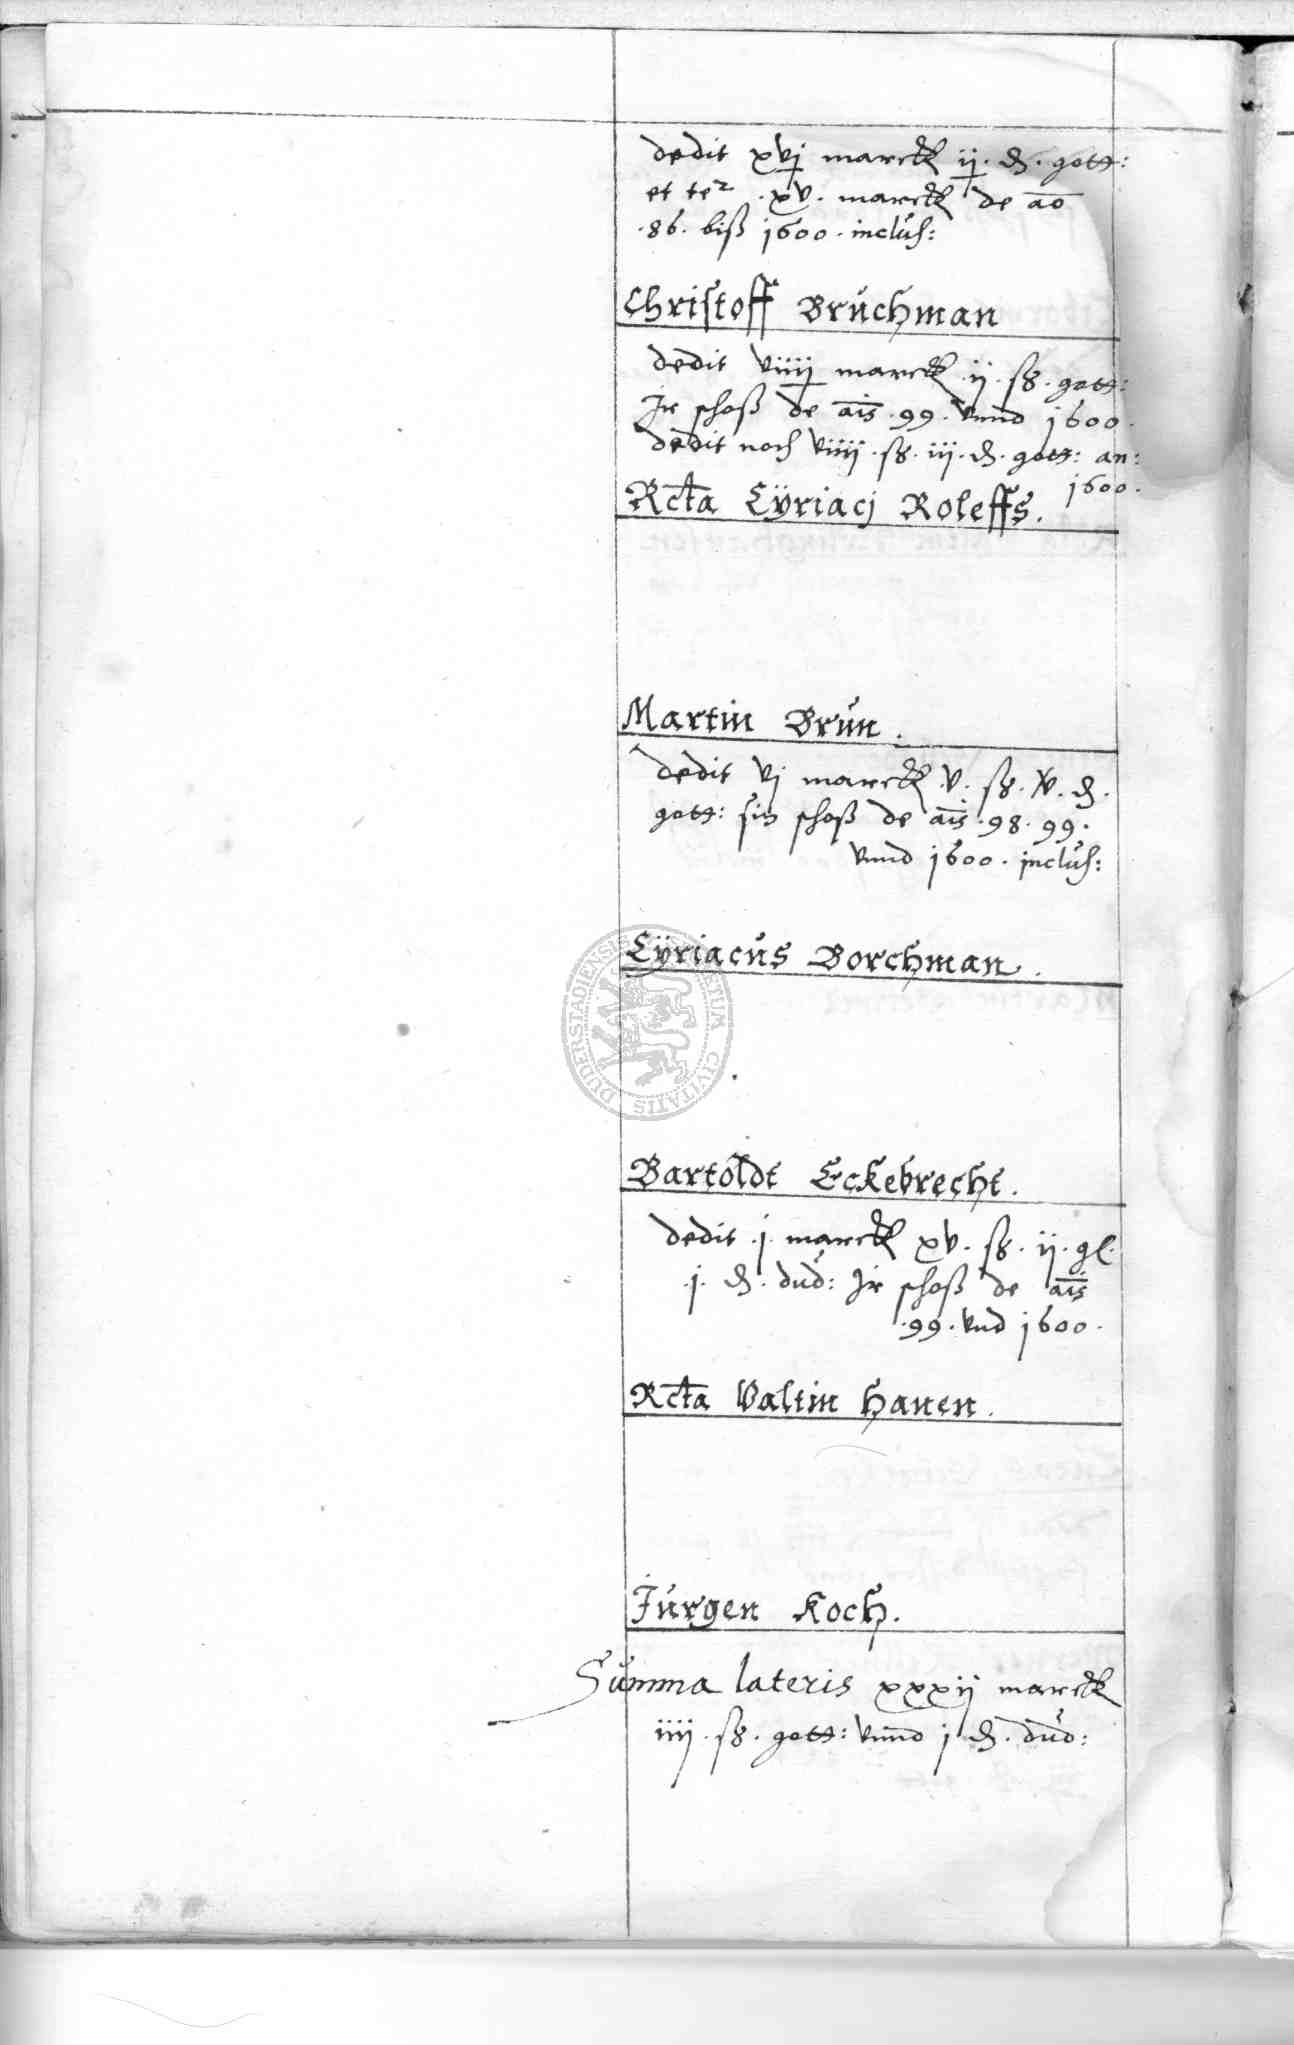 dedit xvj marck ij. ₰. gott:
et te2 .xv. marck de ao
.86. biß 1600. inclus:
Christoff Brŭchman
dedit viiij marck ij. ß. gott:
Ir schoß de ais .99. vnnd 1600.
dedit noch viiij. ß. iij. ₰. gott: an:
1600.
Rcta Cÿriacj Roleffs.
Martin Brŭn.
dedit vj marck .v. ß. iv. ₰.
gott: sin schoß de ais .98. 99.
vnnd 1600. inclus:
Cÿriacŭs Borchman.
DUDERSTADIENSIS CIVITATIS
Bartoldt Eckebrecht.
dedit .j. marck xv. ß. ij. gl.
.j. ₰. dŭd: Ir schoß de ais
.99. vnd 1600.
Rcta Valtin Hanen.
Jŭrgen Koch.
Sŭmma lateris xxxij marck
iiij. ß. gott: vnnd j ₰. dŭd: